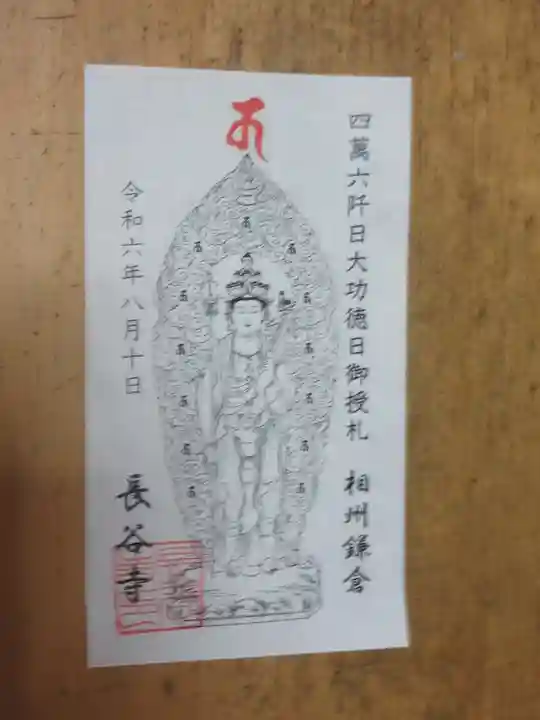 四萬六阡日大功徳日御授札 相州鎌倉
令和六年八月十日
長谷寺